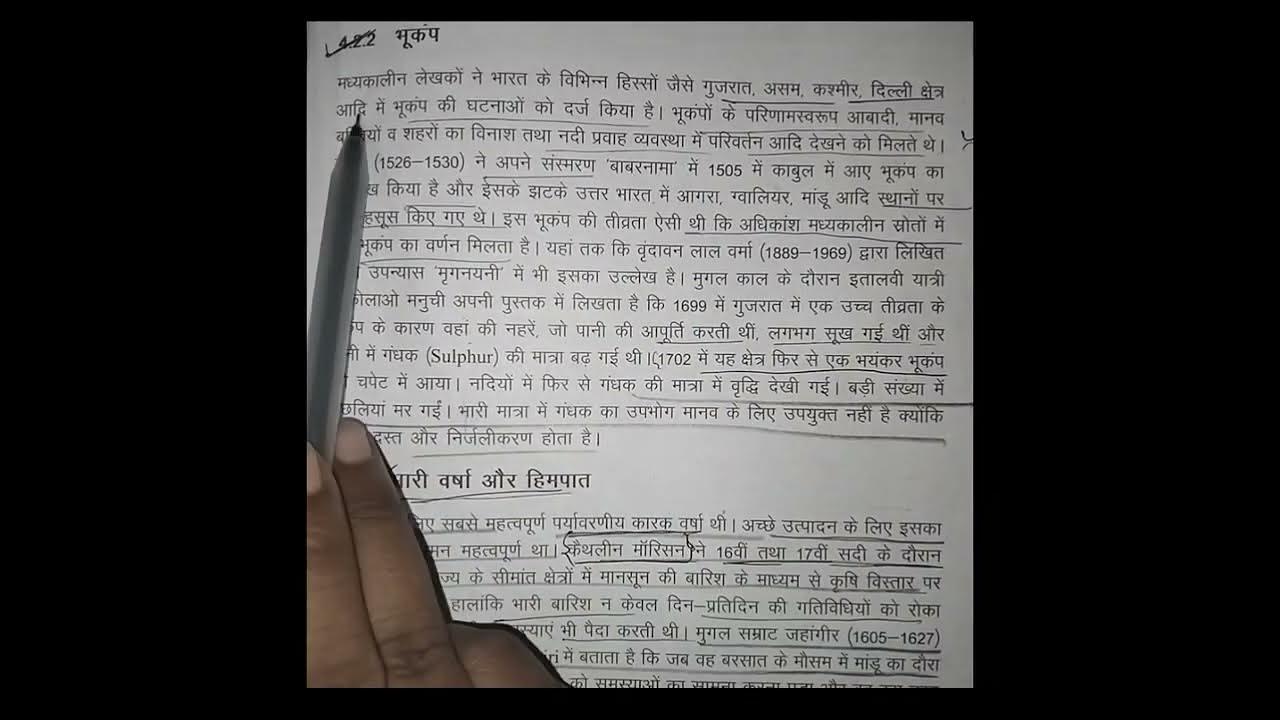 4.2.2 भूकंप
मध्यकालीन लेखकों ने भारत के विभिन्न हिस्सों जैसे गुजरात, असम, कश्मीर, दिल्ली क्षेत्र
आदि में भूकंप की घटनाओं को दर्ज किया है। भूकंपों के परिणामस्वरूप आबादी, मानव
व शहरों का विनाश तथा नदी प्रवाह व्यवस्था में परिवर्तन आदि देखने को मिलते थे।
(1526–1530) ने अपने संस्मरण 'बाबरनामा' में 1505 में काबुल में आए भूकंप का
किया है और ईसके झटके उत्तर भारत में आगरा, ग्वालियर, मांडू आदि स्थानों पर
हसूस किए गए थे। इस भूकंप की तीव्रता ऐसी थी कि अधिकांश मध्यकालीन स्रोतों में
भूकंप का वर्णन मिलता है। यहां तक कि वृंदावन लाल वर्मा (1889–1969) द्वारा लिखित
उपन्यास 'मृगनयनी' में भी इसका उल्लेख है। मुगल काल के दौरान इतालवी यात्री
कोलाओ मनुची अपनी पुस्तक में लिखता है कि 1699 में गुजरात में एक उच्च तीव्रता के
के कारण वहां की नहरें, जो पानी की आपूर्ति करती थीं, लगभग सूख गई थीं और
में गंधक (Sulphur) की मात्रा बढ़ गई थी। 1702 में यह क्षेत्र फिर से एक भयंकर भूकंप
चपेट में आया। नदियों में फिर से गंधक की मात्रा में वृद्धि देखी गई। बड़ी संख्या में
छलियां मर गईं। भारी मात्रा में गंधक का उपभोग मानव के लिए उपयुक्त नहीं है क्योंकि
दस्त और निर्जलीकरण होता है।
भारी वर्षा और हिमपात
लिए सबसे महत्वपूर्ण पर्यावरणीय कारक वर्षा थी। अच्छे उत्पादन के लिए इसका
महत्वपूर्ण था। कैथलीन मॉरिसन ने 16वीं तथा 17वीं सदी के दौरान
ज्य के सीमांत क्षेत्रों में मानसून की बारिश के माध्यम से कृषि विस्तार पर
हालांकि भारी बारिश न केवल दिन–प्रतिदिन की गतिविधियों को रोका
स्याएं भी पैदा करती थी। मुगल सम्राट जहांगीर (1605–1627)
में बताता है कि जब वह बरसात के मौसम में मांडू का दौरा
को समस्याओं का सामना करना पड़ा और